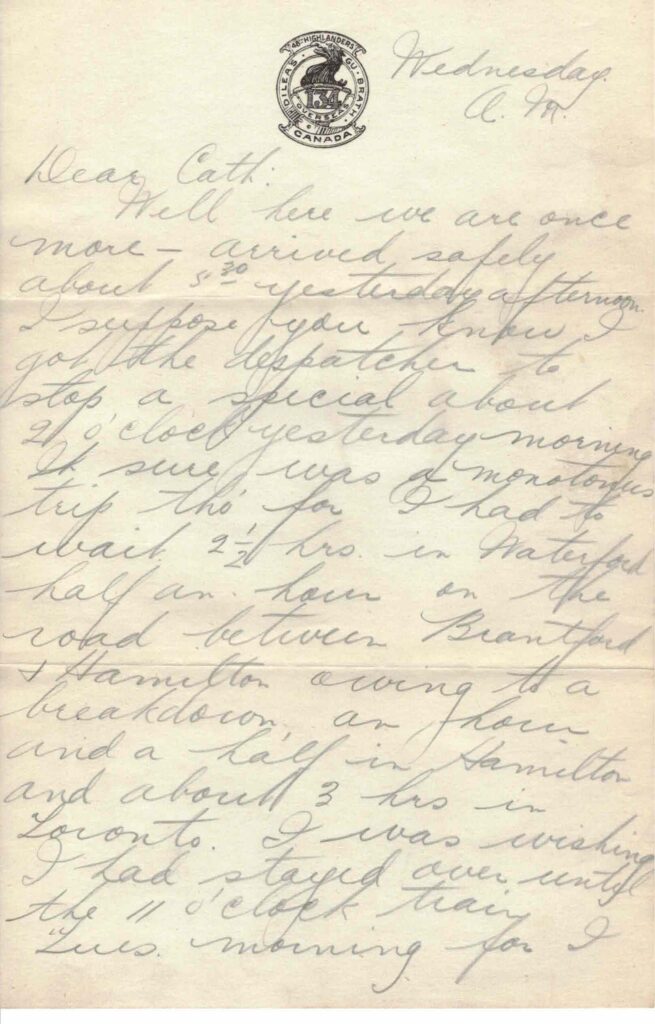 48TH HIGHLANDERS
DILEAS GU BRATH
134
OVERSEAS
CANADA
Wednesday.
A. M.
Dear Cath:
Well here we are once
more – arrived safely
about 5 30 yesterday afternoon.
I suppose you know I
got the despatcher to
stop a special about
2 o'clock yesterday morning
It sure was a monotonus
trip tho' for I had to
wait 2 1/2 hrs. in Waterford
half an hour on the
road between Brantford
& Hamilton owing to a
breakdown, an hour
and a half in Hamilton
and about 3 hrs in
Toronto. I was wishing
I had stayed over until
the 11 o'clock train
Tues. morning for I